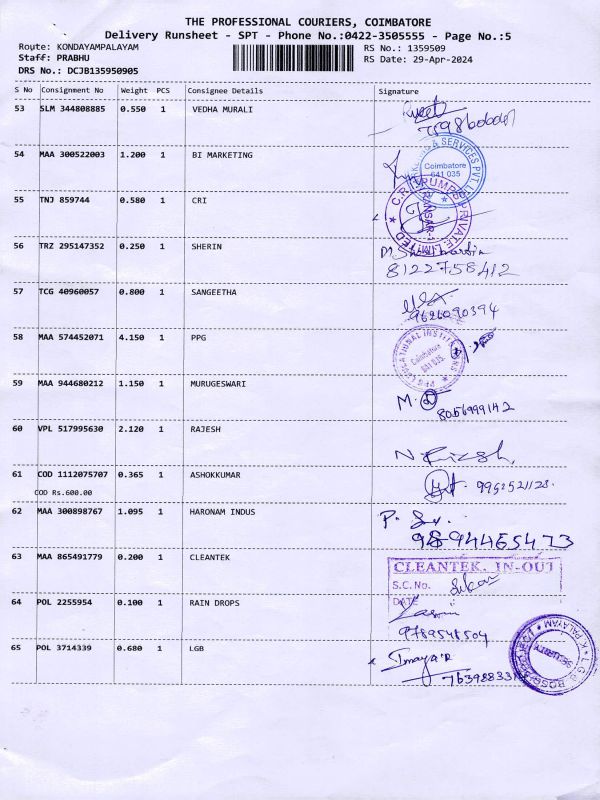 THE PROFESSIONAL COURIERS, COIMBATORE
Delivery Runsheet - SPT - Phone No.:0422-3505555 - Page No.:5
Route: KONDAYAMPALAYAM
RS No.: 1359509
Staff: PRABHU
RS Date: 29-Apr-2024
DRS No.: DCJB135950905
S No Consignment No Weight PCS Consignee Details Signature
53 SLM 344808885 0.550 1 VEDHA MURALI
54 MAA 300522003 1.200 1 BI MARKETING
& SERVICES PVT. LTD
Coimbatore
641 035
55 TNJ 859744 0.580 1 CRI
C.R.I. PUMPS PRIVATE LIMITED
56 TRZ 295147352 0.250 1 SHERIN
8122758412
57 TCG 40960057 0.800 1 SANGEETHA
9626090394
58 MAA 574452071 4.150 1 PPG
PPG EDUCATIONAL INSTITUTIONS
Coimbatore
641 035.
59 MAA 944680212 1.150 1 MURUGESWARI
M.
8056999142
60 VPL 517995630 2.120 1 RAJESH
61 COD 1112075707 0.365 1 ASHOKKUMAR
COD Rs.600.00
62 MAA 300898767 1.095 1 HARONAM INDUS
P.
9894465473
63 MAA 865491779 0.200 1 CLEANTEK
CLEANTEK. IN-OUT
S.C. No.
DATE
64 POL 2255954 0.100 1 RAIN DROPS
9789548504
65 POL 3714339 0.680 1 LGB
K.PALAYAM
SECURITY